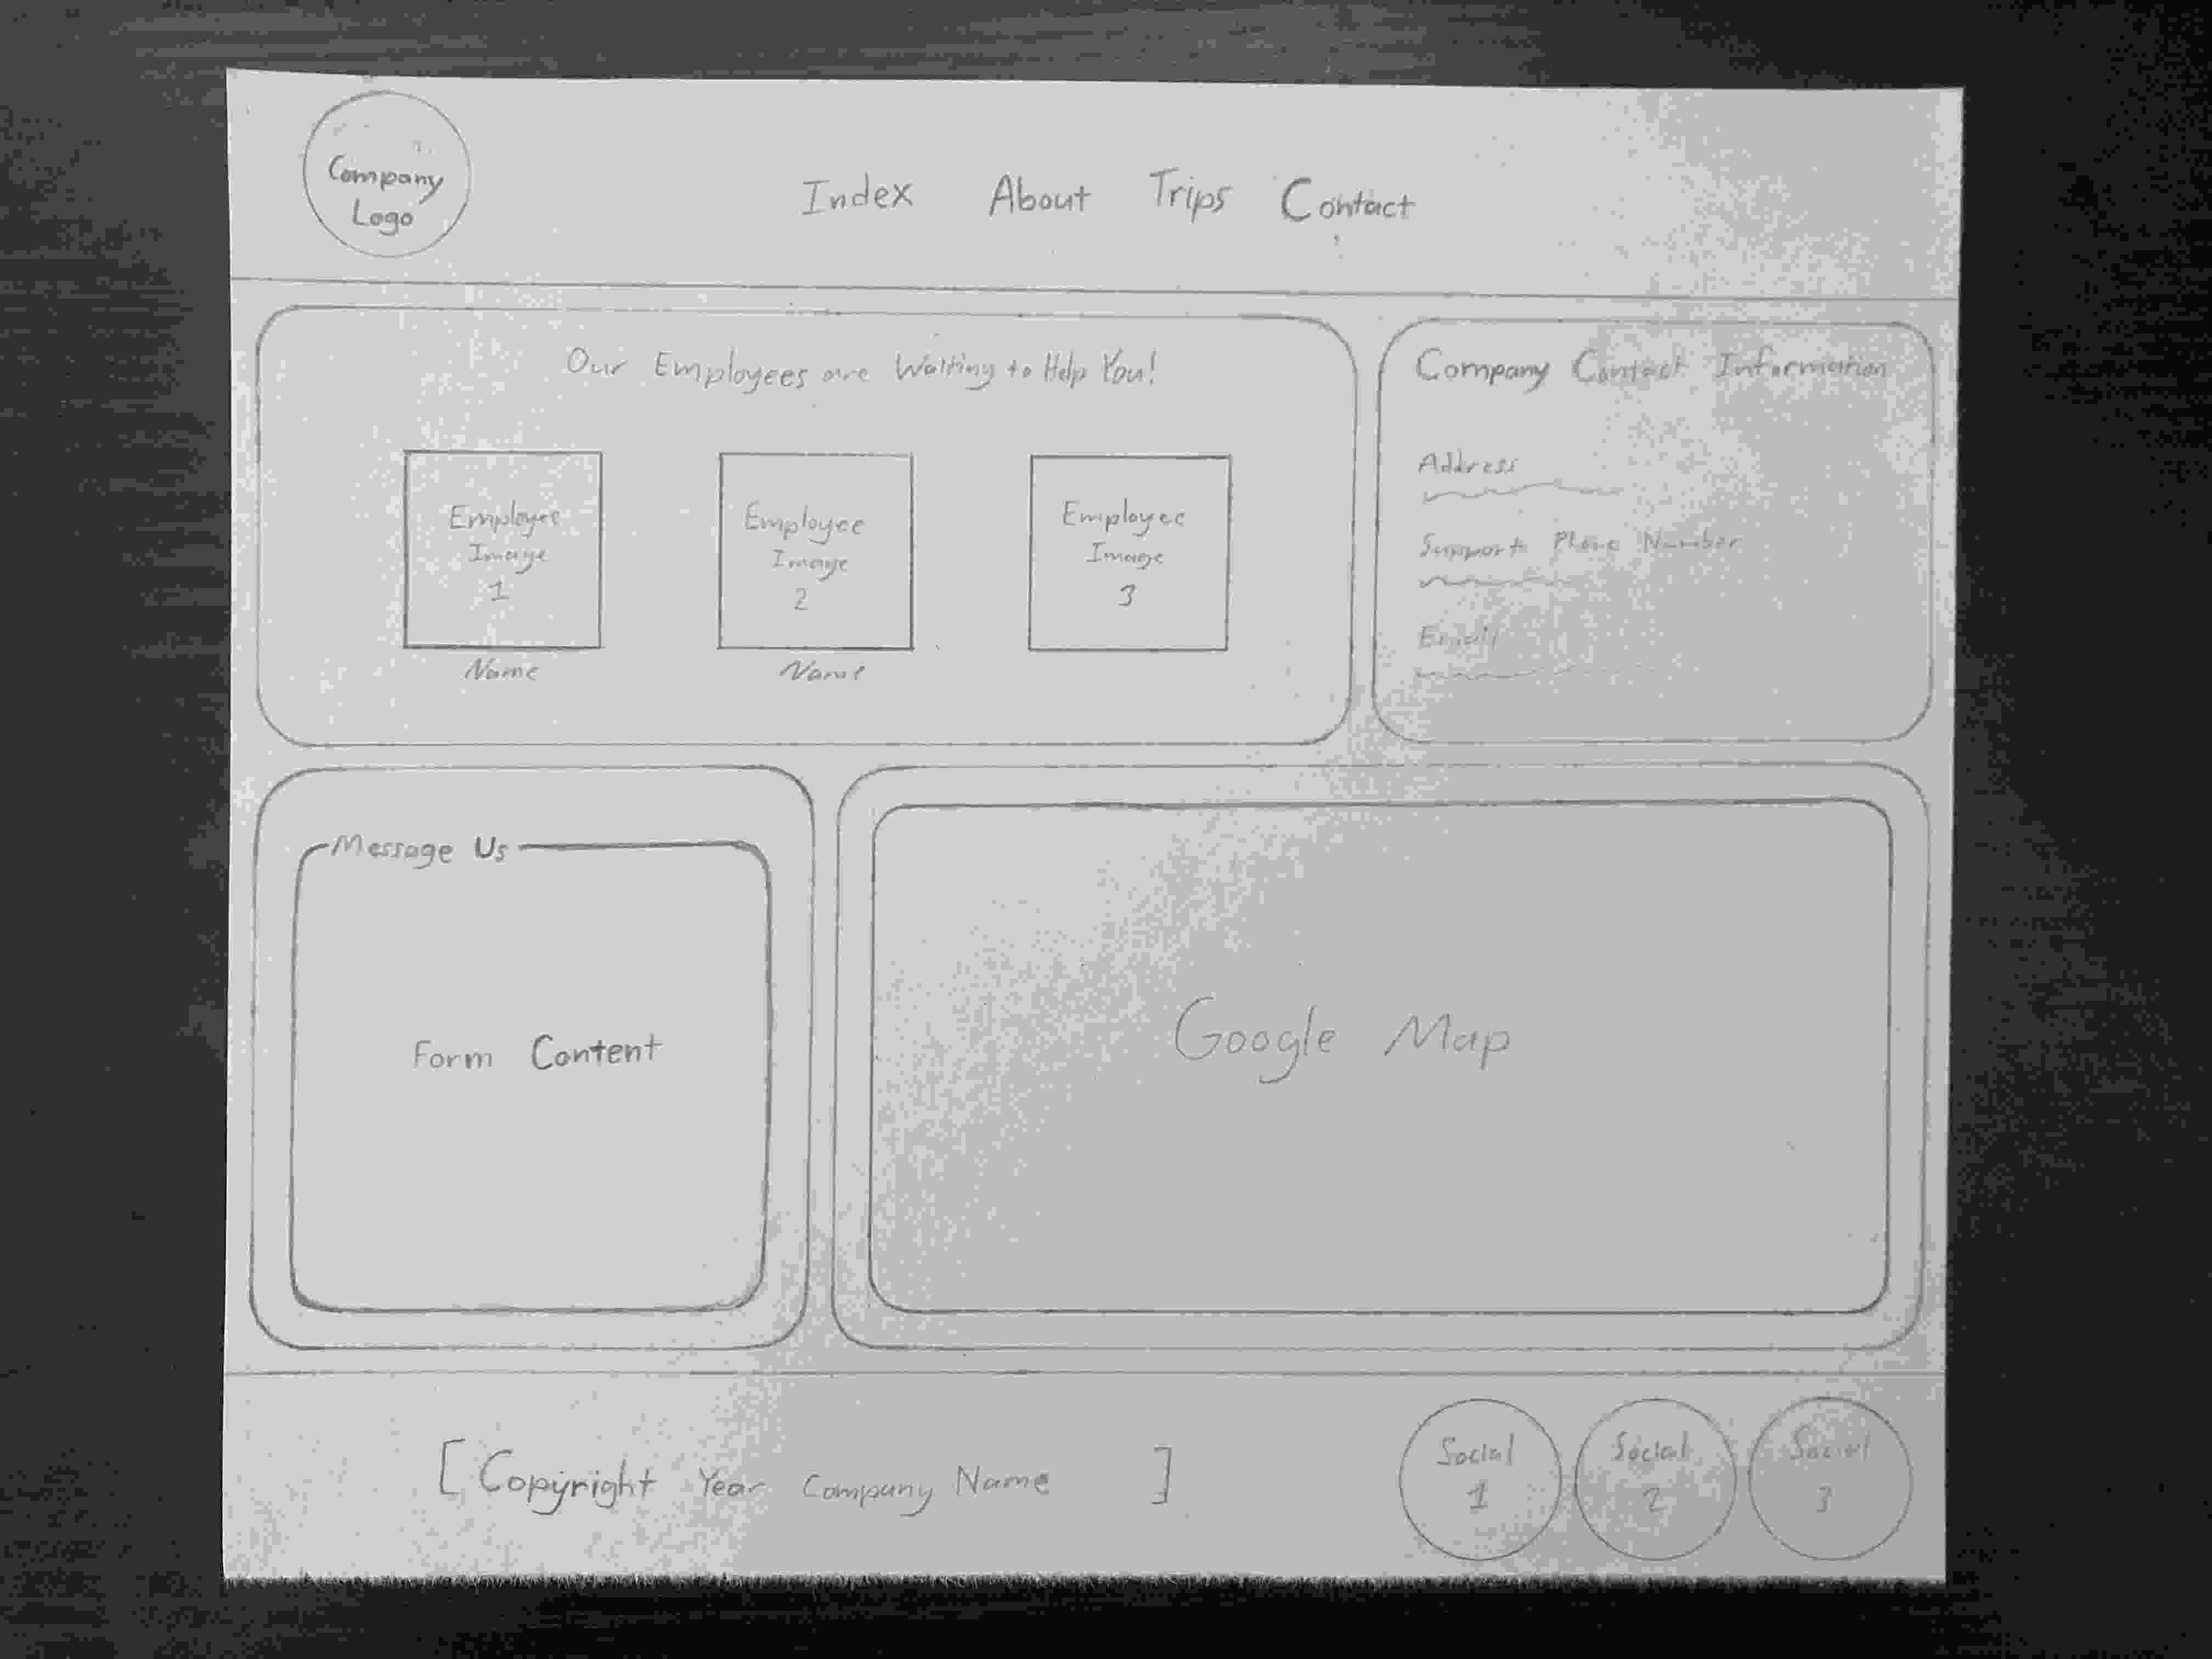 Company
Logo
Index About Trips Contact
Our Employees are Waiting to Help You!
Employee
Image
1
Name
Employee
Image
2
Name
Employee
Image
3
Company Contact Information
Address
Support Phone Number
Email
Message Us
Form Content
Google Map
[Copyright Year Company Name ]
Social
1
Social
2
Social
3